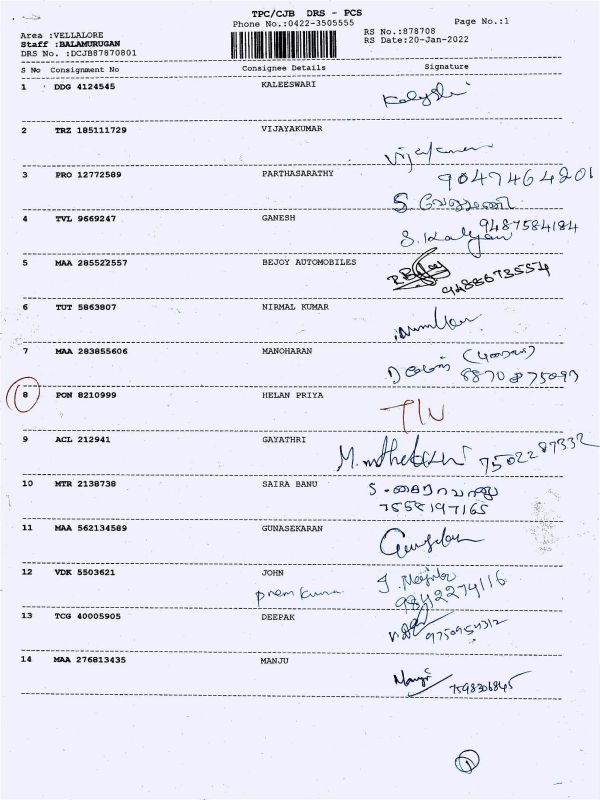 TPC/CJB DRS - PCS
Phone No.:0422-3505555
Page No.:1
Area :VELLALORE
RS No.:878708
Staff :BALAMURUGAN
RS Date:20-Jan-2022
DRS No. :DCJB87870801
S No Consignment No Consignee Details Signature
1 DDG 4124545 KALEESWARI
2 TRZ 185111729 VIJAYAKUMAR
3 PRO 12772589 PARTHASARATHY 9047464201
4 TVL 9669247 GANESH 9487584184
S. Kalyan
5 MAA 285522557 BEJOY AUTOMOBILES
9488673554
6 TUT 5863807 NIRMAL KUMAR
7 MAA 283855606 MANOHARAN
8 PON 8210999 HELAN PRIYA
9 ACL 212941 GAYATHRI
7502287332
10 MTR 2138738 SAIRA BANU
7558197165
11 MAA 562134589 GUNASEKARAN
12 VDK 5503621 JOHN
prem kumar 9842274116
13 TCG 40005905 DEEPAK
14 MAA 276813435 MANJU
7598306845
1